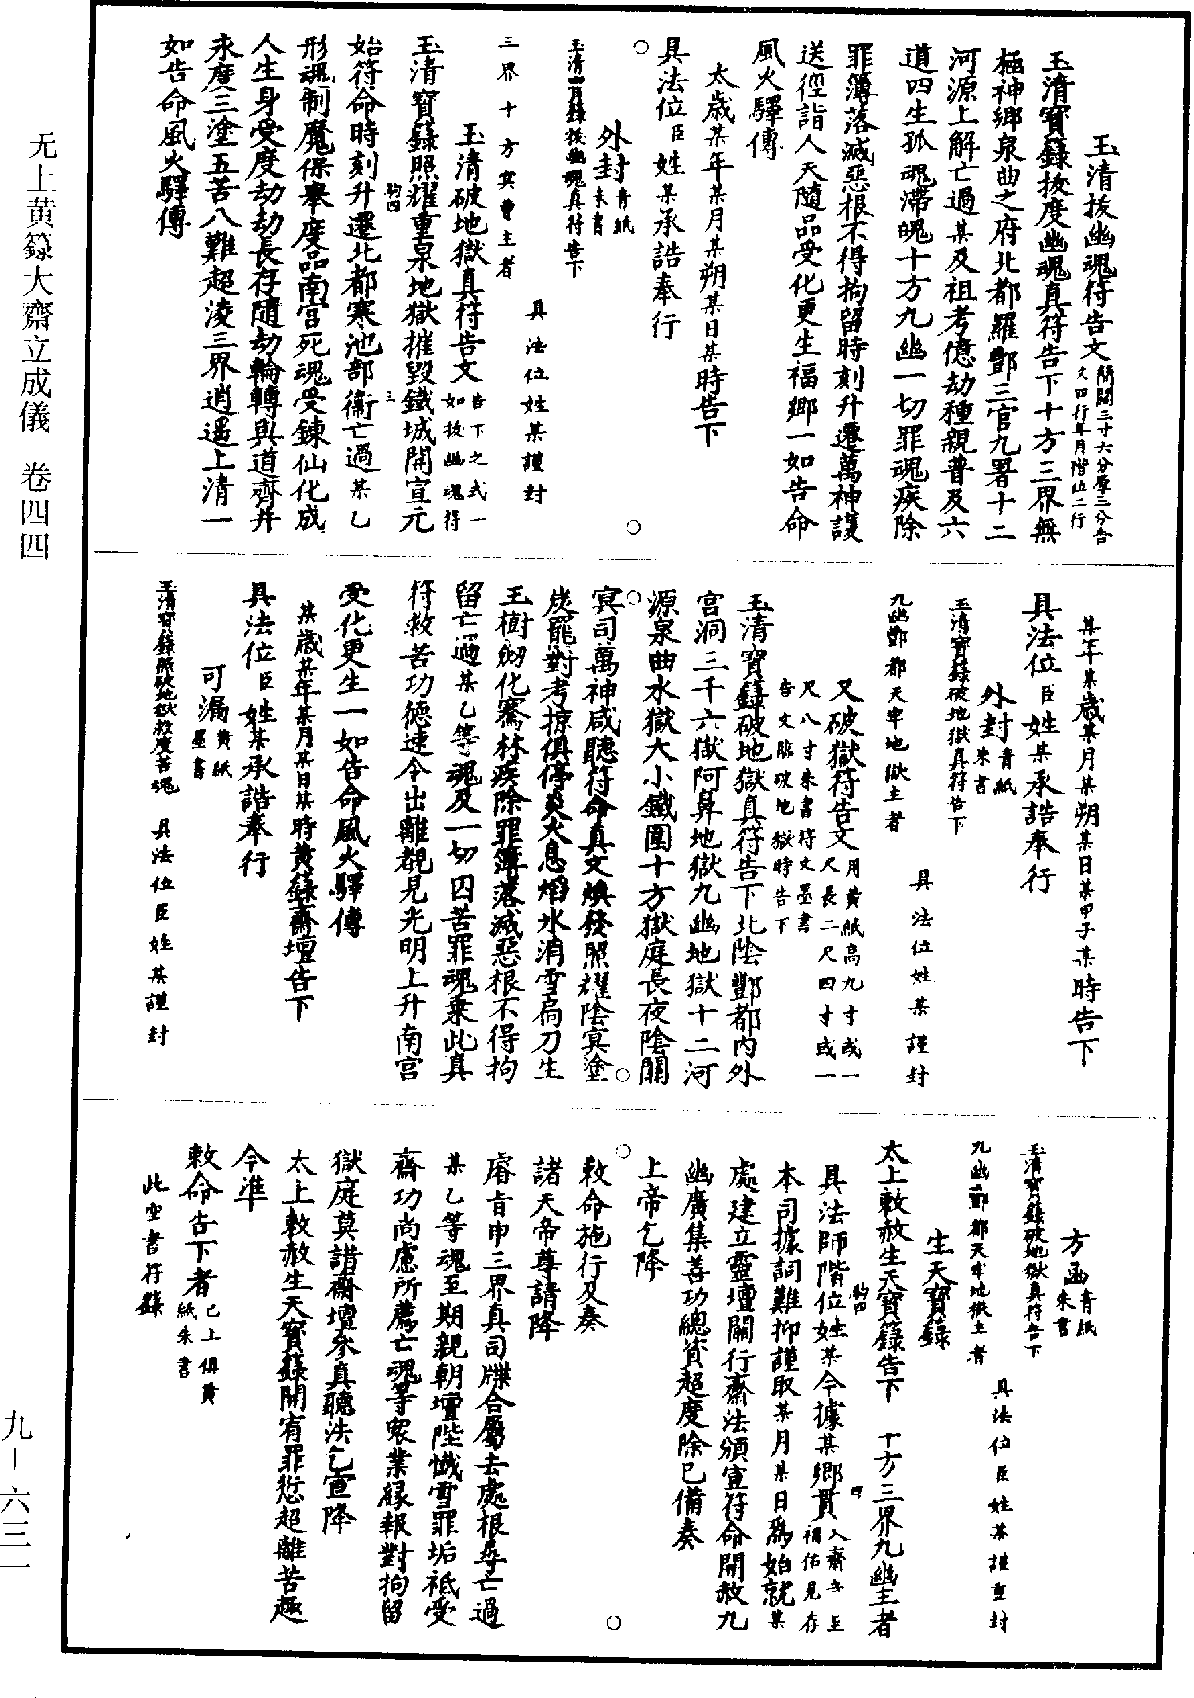 无上黄籙大齋立成儀 卷四四
九—六三一
玉清拔幽魂符告文簡闊三寸六分厚三分告
文四行年月階位二行
玉清寶籙拔度幽魂真符告下十方三界無
極神鄉泉曲之府北都羅酆三官九署十二
河源上解亡過某及祖考億劫種親普及六
道四生孤魂滯魄十方九幽一切罪魂疾除
罪簿落滅惡根不得拘留時刻升遷萬神護
送徑詣人天隨品受化更生福鄉一如告命
風火驛傳
太歲某年某月某朔某日某時告下
具法位臣姓某承誥奉行
外封青紙
朱書
玉清寶籙拔幽魂真符告下
三界十方冥曹主者
具法位姓某謹封
玉清破地獄真符告文告下之式一
如拔幽魂符
玉清寶籙照耀重泉地獄摧毀鐵城開宣元
始符命時刻升遷北都寒池部衛亡過某乙
形魂制魔保舉度品南宮死魂受鍊仙化成
人生身受度劫劫長存隨劫輪轉與道齊并
永度三塗五苦八難超淩三界逍遥上清一
如告命風火驛傳
某年某歲某月某朔某日某甲子某時告下
具法位臣姓某承誥奉行
外封青紙
朱書
玉清寶籙破地獄真符告下
九幽酆都天牢地獄主者
具法位姓某謹封
又破獄符告文用黄紙高九寸或一
尺長二尺四寸或一
尺八寸朱書符文墨書
告文臨破地獄時告下
玉清寶籙破地獄真符告下北陰酆都内外
宮洞三千六獄阿鼻地獄九幽地獄十二河
源泉曲水獄大小鐵圍十方獄庭長夜陰關
冥司萬神咸聽符命真文煥發照耀陰冥塗
炭罷對考掠俱停炎火息焰氷消雪扃刀生
玉樹劒化騫林疾除罪簿落滅惡根不得拘
留亡過某乙等魂及一切囚苦罪魂乘此真
符救苦功德速令出離覩見光明上升南宮
受化更生一如告命風火驛傳
某歲某年某月某日某時黄籙齋壇告下
具法位臣姓某承誥奉行
可漏黄紙
墨書
玉清寶籙照破地獄救度苦魂
具法位臣姓某謹封
方函青紙
朱書
玉清寶籙破地獄真符告下
九幽酆都天牢地獄主者
具法位臣姓某謹重封
生天寶籙
太上敕赦生天寶籙告下 十方三界九幽主者
具法師階位姓某今據某鄉貫入齋意至
福佑見存
本司據詞難抑謹取某月某日爲始就某
處建立靈壇關行齋法頒宣符命開赦九
幽廣集善功總資超度除已備奏
上帝乞降
敕命施行及奏
諸天帝尊請降
睿旨申三界真司牒合屬去處根尋亡過
某乙等魂至期親朝壇陛懺雪罪垢祗受
齋功尚慮所薦亡魂等衆業緣報對拘留
獄庭莫諧齋壇參真聽法乞宣降
太上敕赦生天寶籙開宥罪愆超離苦趣
今準
敕命告下者已上俱黄
紙朱書
此空書符籙